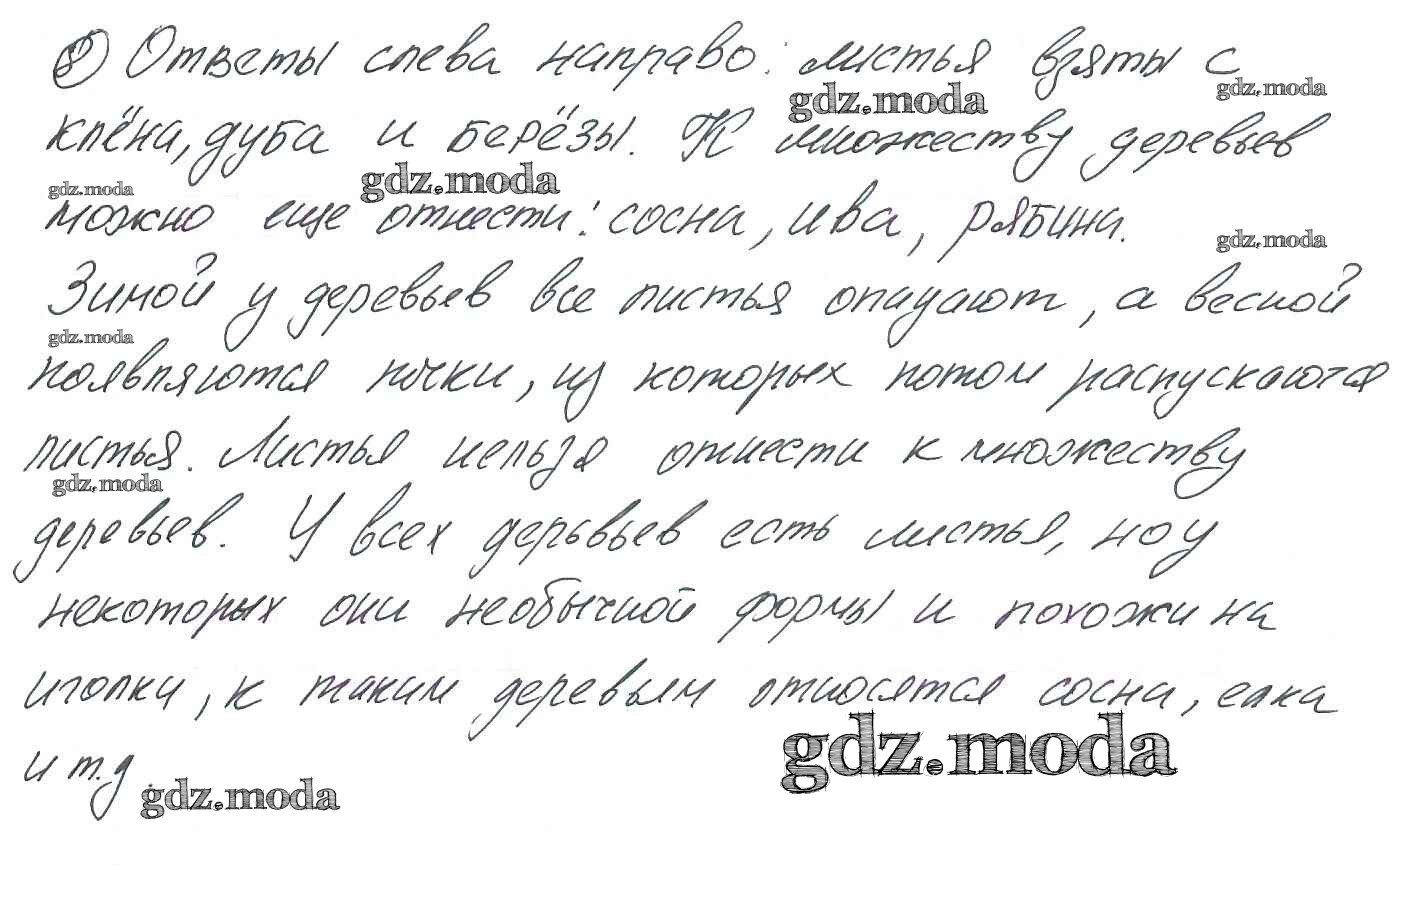 8) Ответы слева направо: листья взяты с
gdz.moda gdz.moda
клёна, дуба и берёзы. К множеству деревьев
gdz.moda gdz.moda
можно еще отнести: сосна, ива, рябина.
gdz.moda
Зимой у деревьев все листья опадают, а весной
gdz.moda
появляются почки, из которых потом распускаются
листья. Листья нельзя отнести к множеству
gdz.moda
деревьев. У всех деревьев есть листья, но у
некоторых они необычной формы и похожи на
иголки, к таким деревьям относятся сосна, елка
gdz.moda
и т.д
gdz.moda